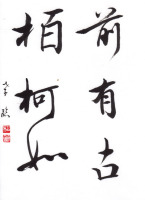 前有古
柏柯如